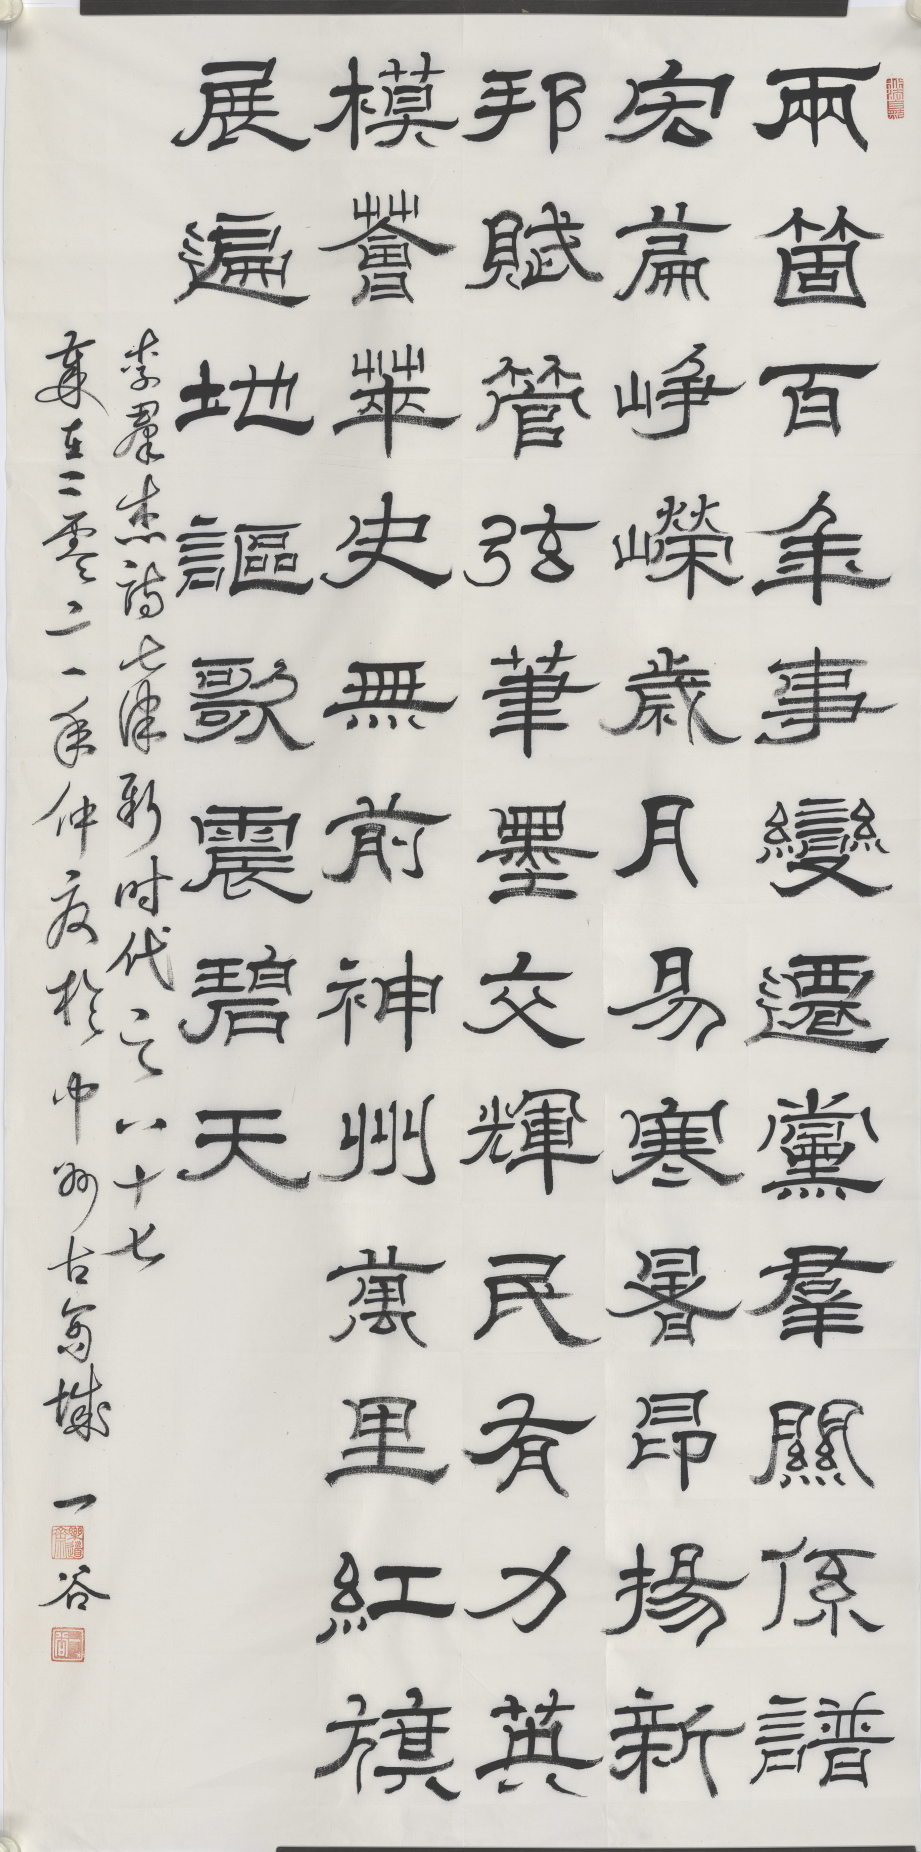 兩箇百年事變遷黨羣關係譜
宏篇崢嶸歲月易寒暑昂揚新
邦賦管弦筆墨交輝民有力英
模薈萃史無前神州萬里紅旗
展遍地謳歌震碧天
李羣杰詩七律新时代之八十七
歲在二零二一年仲夏於中州古商城
一谷